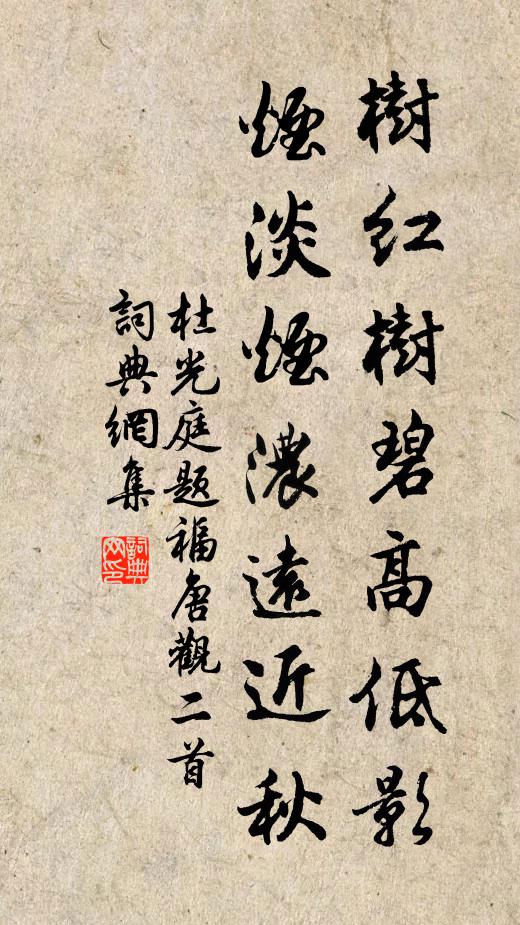 樹紅樹碧高低影
煙淡煙濃遠近秋
杜光庭題福唐觀二首
詞典網集
詞典网印